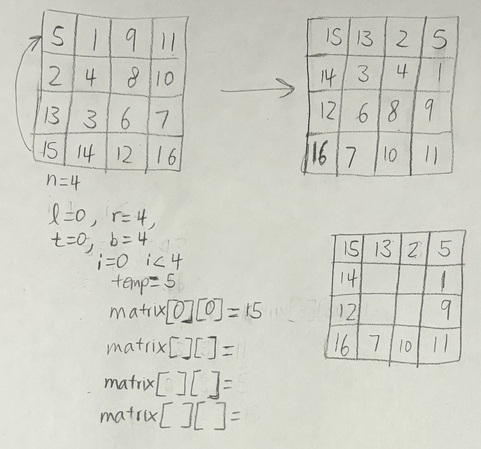 5 1 9 11
2 4 8 10
13 3 6 7
15 14 12 16
15 13 2 5
14 3 4 1
12 6 8 9
16 7 10 11
n=4
l=0, r=4,
t=0, b=4
i=0 i<4
temp=5
matrix[0][0]=15
matrix[ ][ ]=
matrix[ ][ ]=
matrix[ ][ ]=
15 13 2 5
14 1
12 9
16 7 10 11